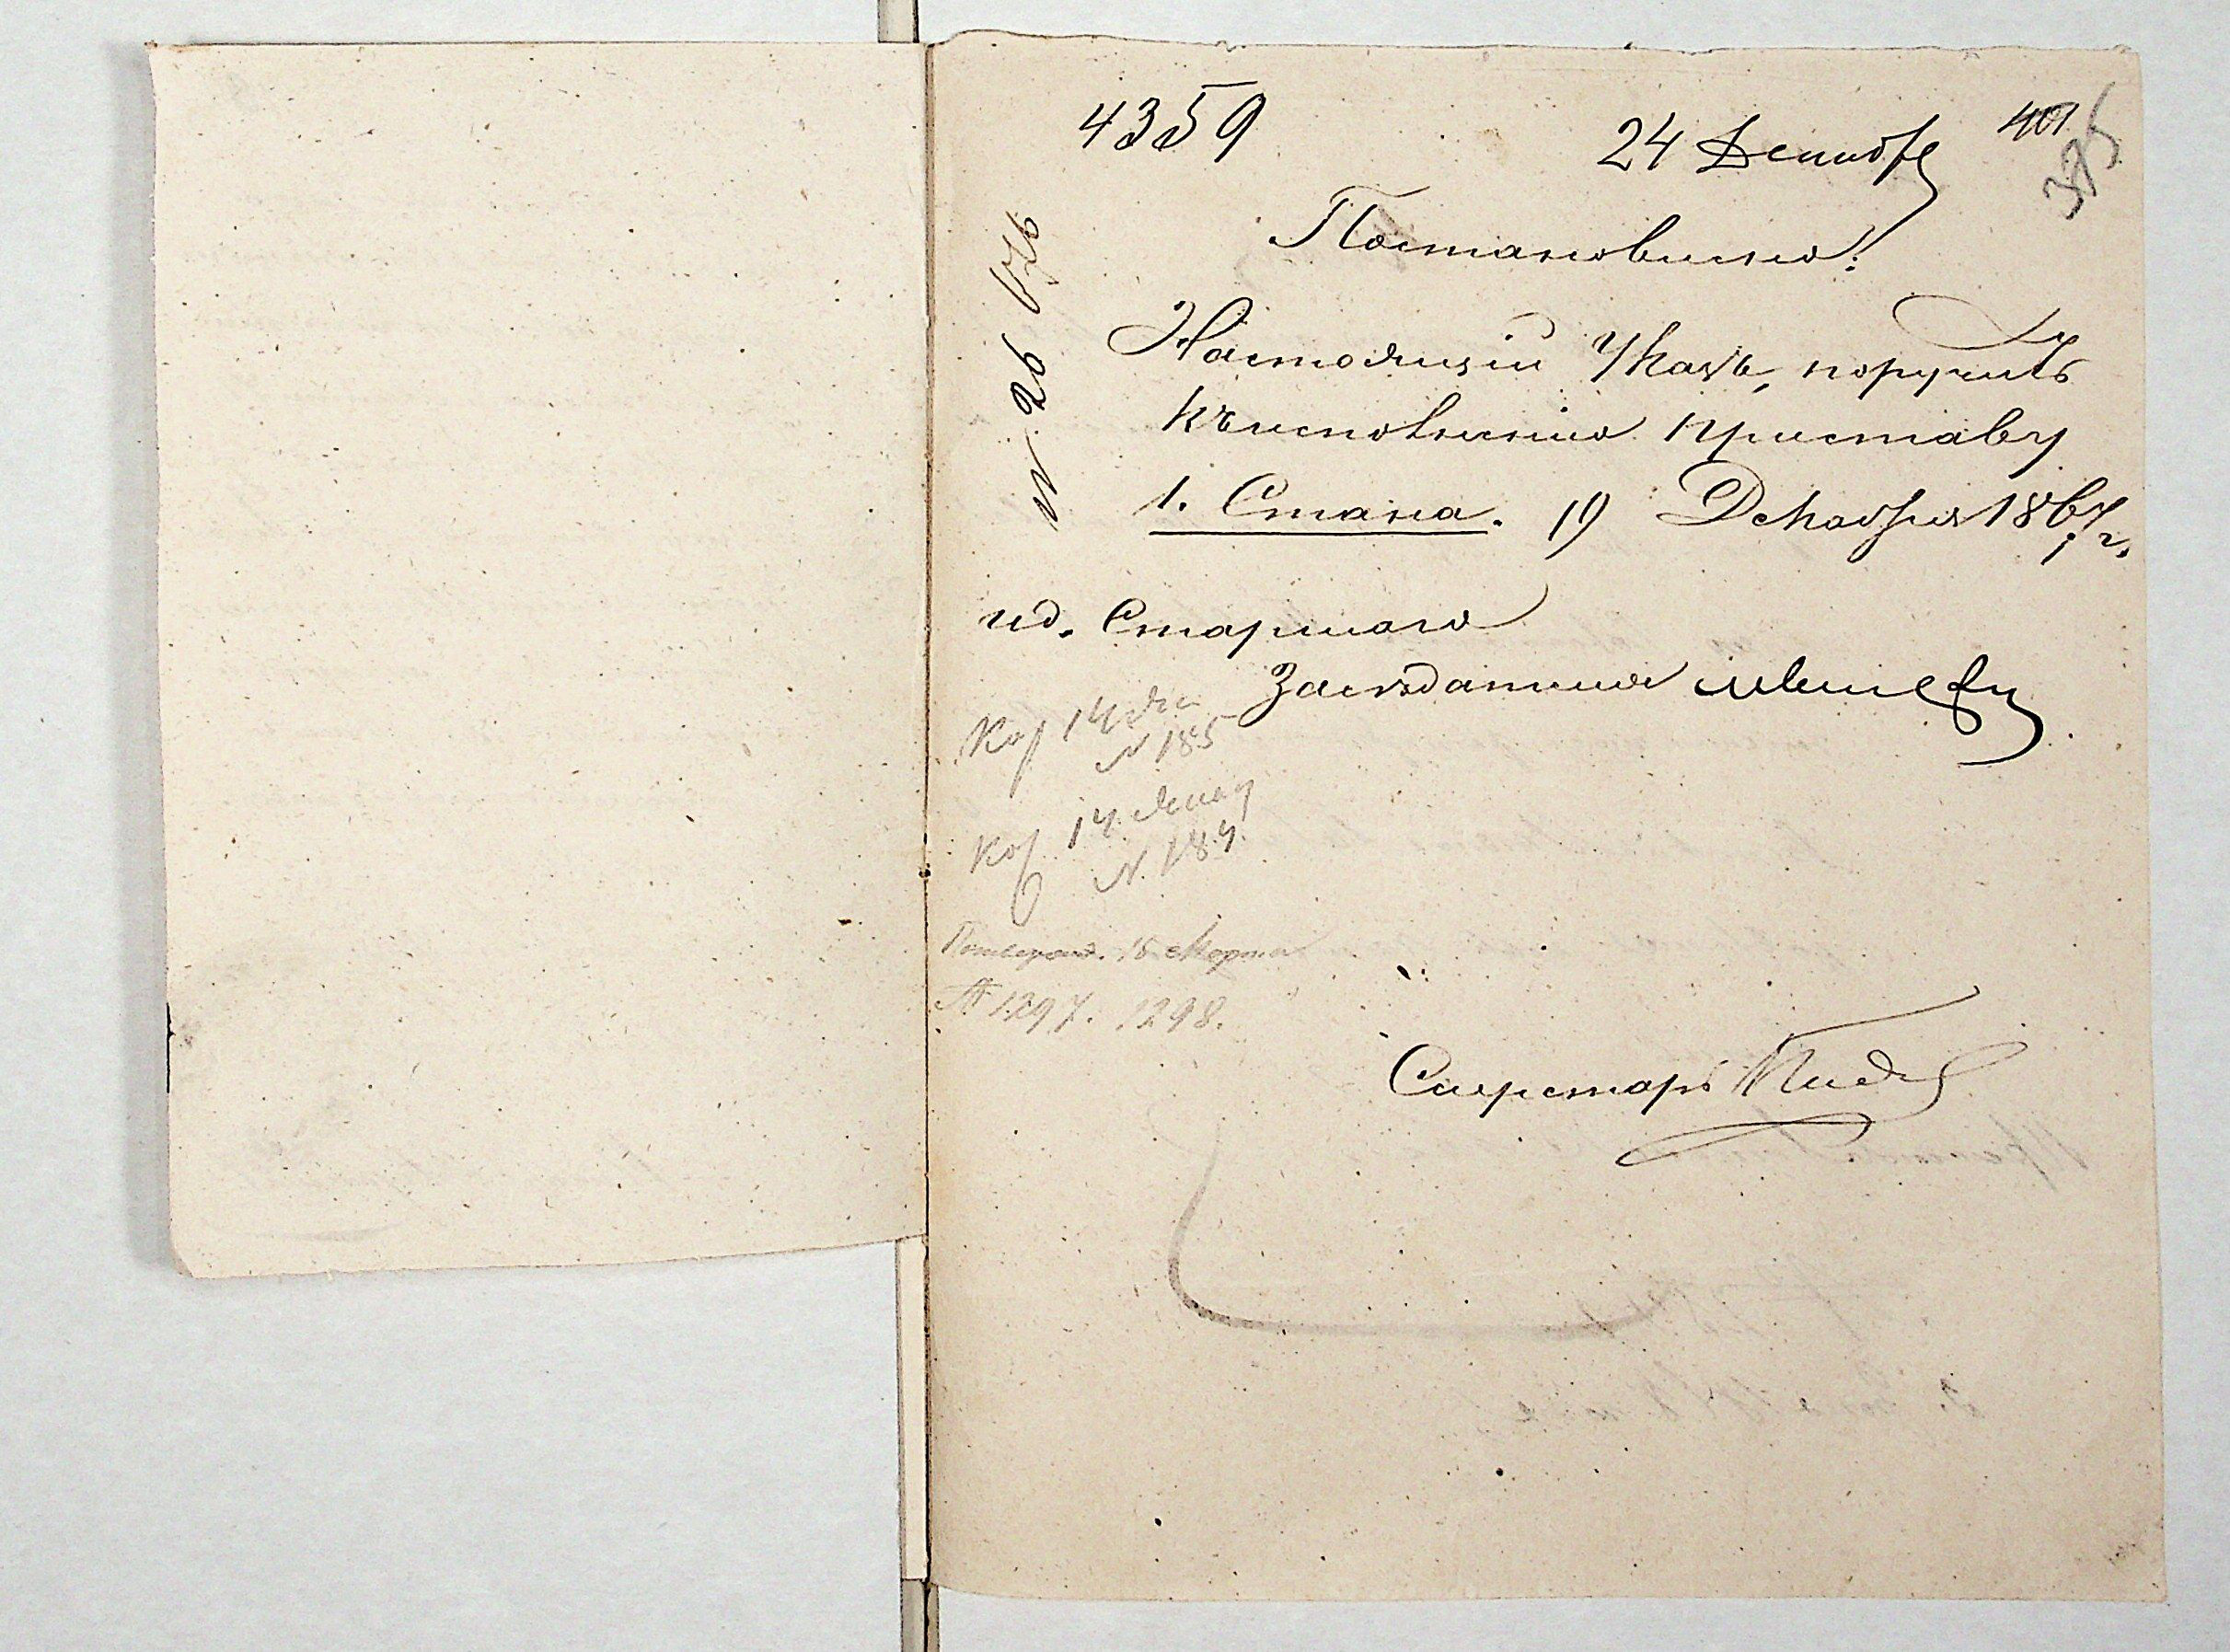 4359
24 Декабр
401
375
Постановлено:
Настоящій Указъ, поручить
къ исполненію приставу
1. Стана. 19 Декабря 1867 г.
ид. Старшаго
Засѣдателя
Кор 14
№ 185
Кор 14
№ 184.
Подтвержд. 15 Марта
№ 1297. 1298.
Секретарь